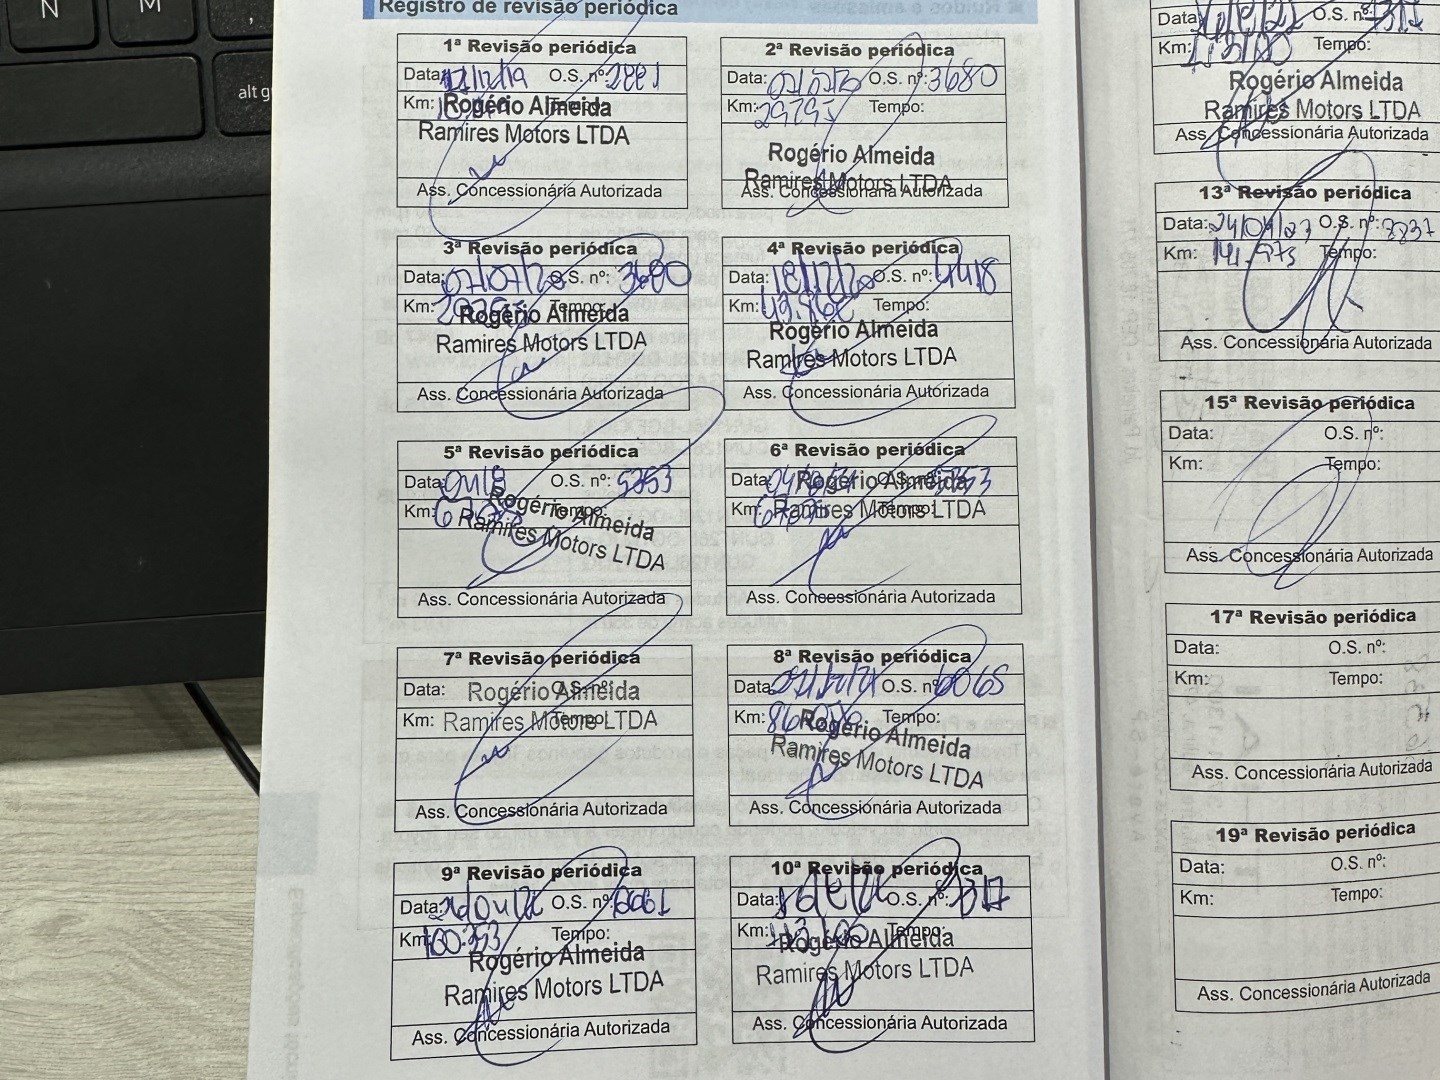 N
M
alt g
,
Registro de revisão periódica
1ª Revisão periódica
Data: 17/12/19 O.S. nº: 2881
Km: Tempo:
Rogério Almeida
Ramires Motors LTDA
Ass. Concessionária Autorizada
2ª Revisão periódica
Data: 07/07/20 O.S. nº: 3680
Km: 29795 Tempo:
Rogério Almeida
Ramires Motors LTDA
Ass. Concessionária Autorizada
3ª Revisão periódica
Data: 07/07/20 O.S. nº: 3680
Km: 29795 Tempo:
Rogério Almeida
Ramires Motors LTDA
Ass. Concessionária Autorizada
4ª Revisão periódica
Data: 18/12/20 O.S. nº: 4418
Km: Tempo:
Rogério Almeida
Ramires Motors LTDA
Ass. Concessionária Autorizada
5ª Revisão periódica
Data: O.S. nº: 5353
Km: Tempo:
Rogério Almeida
Ramires Motors LTDA
Ass. Concessionária Autorizada
6ª Revisão periódica
Data: O.S. nº: 5353
Km: Tempo:
Rogério Almeida
Ramires Motors LTDA
Ass. Concessionária Autorizada
7ª Revisão periódica
Data: O.S. nº:
Km: Tempo:
Rogério Almeida
Ramires Motors LTDA
Ass. Concessionária Autorizada
8ª Revisão periódica
Data: O.S. nº: 6065
Km: Tempo:
Rogério Almeida
Ramires Motors LTDA
Ass. Concessionária Autorizada
9ª Revisão periódica
Data: O.S. nº:
Km: 100.353 Tempo:
Rogério Almeida
Ramires Motors LTDA
Ass. Concessionária Autorizada
10ª Revisão periódica
Data: O.S. nº: 7317
Km: Tempo:
Rogério Almeida
Ramires Motors LTDA
Ass. Concessionária Autorizada
Data: O.S. nº:
Km: Tempo:
Rogério Almeida
Ramires Motors LTDA
Ass. Concessionária Autorizada
13ª Revisão periódica
Data: 24/04/23 O.S. nº: 8837
Km: Tempo:
Ass. Concessionária Autorizada
15ª Revisão periódica
Data: O.S. nº:
Km: Tempo:
Ass. Concessionária Autorizada
17ª Revisão periódica
Data: O.S. nº:
Km: Tempo:
Ass. Concessionária Autorizada
19ª Revisão periódica
Data: O.S. nº:
Km: Tempo:
Ass. Concessionária Autorizada